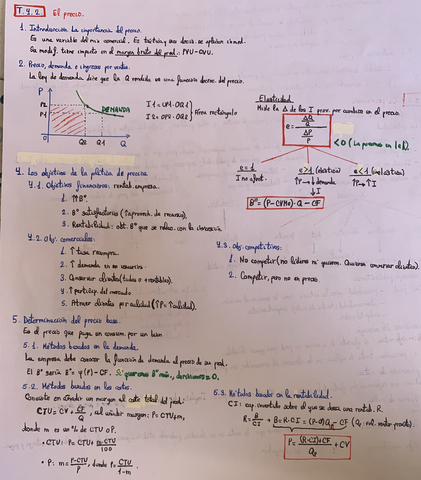 T.4.2. El precio.
1. Introducción. La importancia del precio.
Es una variable del mix comercial. Es táctica, sus decis. se aplican inmed.
Su modif. tiene impacto en el margen bruto del prod.: PVU - CVU.
2. Precio, demanda e ingresos por ventas.
La ley de demanda dice que la Q vendida es una función decrec. del precio.
P
P2
P1
DEMANDA
Q2 Q1 Q
I1 = OP1 · OQ1
I2 = OP2 · OQ2
Área rectángulo
Elasticidad
Mide la Δ de los I prov. por cambios en el precio.
e = ΔQ/Q / ΔP/P
< 0 (La ponemos en | |)
e = 1
I no afect.
e > 1 (elástica)
↑P → ↓ demanda
↓ I
e < 1 (inelást.)
↑P → ↑I
Bº = (P - CVMe) · Q - CF
4. Los objetivos de la política de precios
4.1. Objetivos financieros: rentab. empresa.
1. ↑Bº.
2. Bº satisfactorios
3. Rentabilidad: obt. Bº que se relac. con la inversión
4.2. Obj. comerciales:
1. ↑ tasa recompra.
2. ↑ demanda en no usuarios.
3. Conservar clientes (todos o + rentables).
4. ↑ particip. del mercado
5. Atraer clientes por calidad (↑P = ↑calidad).
4.3. Obj. competitivos:
1. No competir (no líderes ni quieren. Quieren conservar clientes).
2. Competir, pero no en precio.
5. Determinación del precio base.
Es el precio que paga un consum. por un bien
5.1. Métodos basados en la demanda.
La empresa debe conocer la función de demanda al precio de su prod.
El Bº sería Bº = y(P) - CF. Si queremos Bº máx., derivamos = 0.
5.2. Métodos basados en los costes.
Consiste en añadir un margen al coste total del prod.
CTU = CV + CF/Q, al añadir margen: P = CTU + m,
donde m es un % de CTU o P.
• CTU: P = CTU + m·CTU/100
• P: m = P-CTU/P, donde P = CTU/1-m.
5.3. Métodos basados en la rentabilidad.
CI: cap. invertido sobre el que se desea una rentab. R.
P = (R·CI)+CF/Q + CV